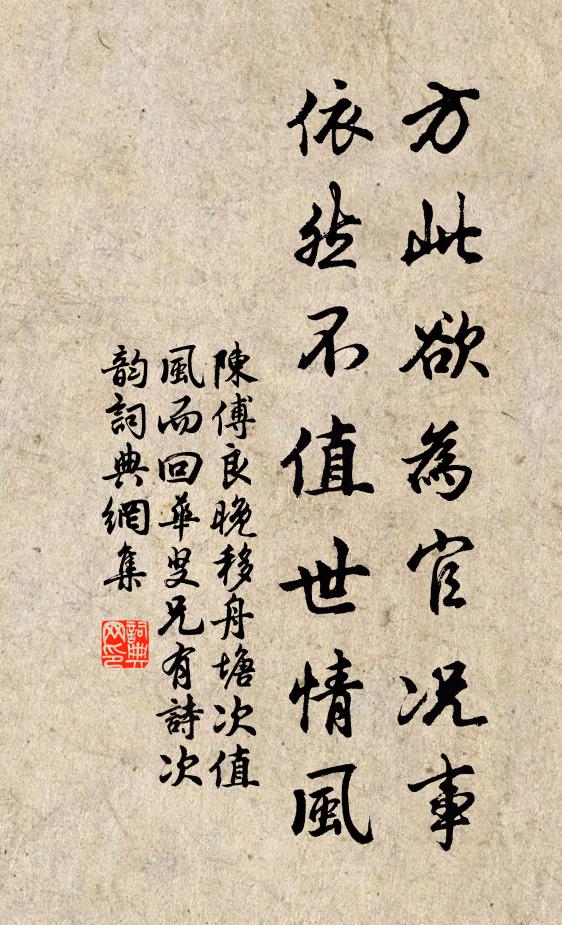 方此欲為官況事
依然不值世情風
陳傅良晚移舟塘次值
風而回華叟兄有詩次
韵詞典網集
詞典
网印